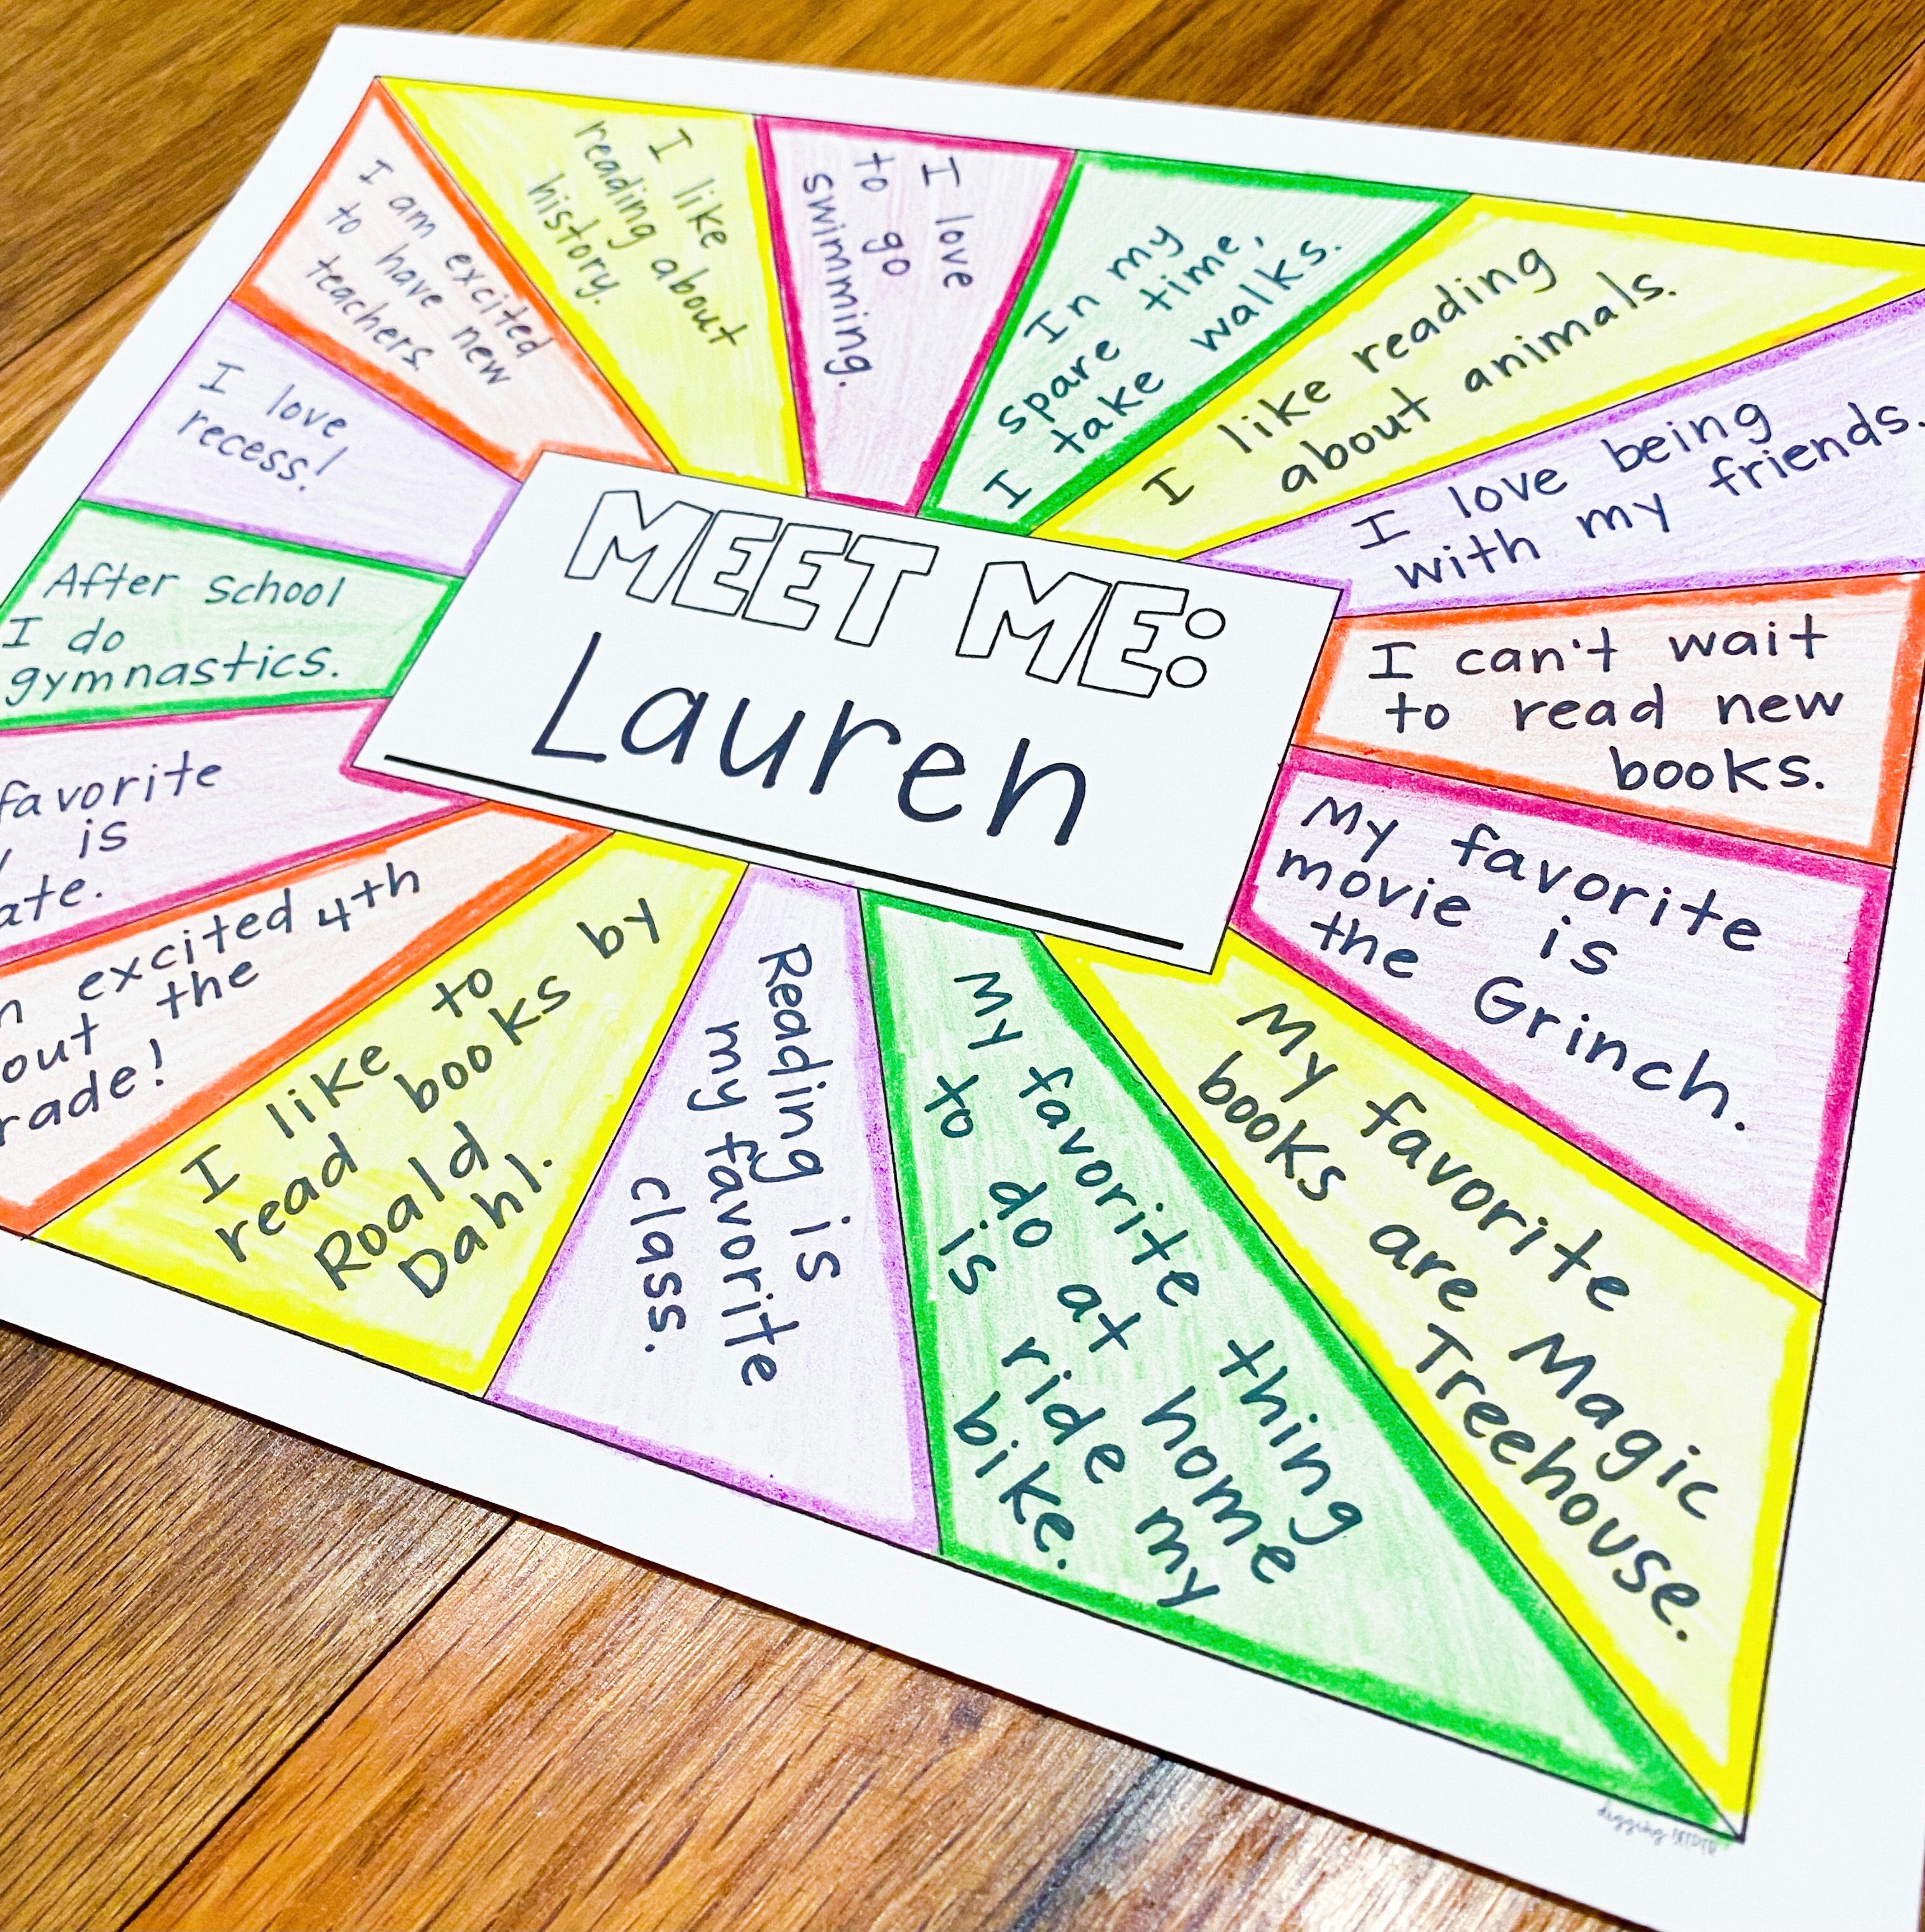 MEET ME:
Lauren
I am excited
to have new
teachers
I like
reading about
history.
I love
to go
swimming.
In my
spare time,
I take walks.
I like reading
about animals.
I love being
with my friends.
I can't wait
to read new
books.
My favorite
movie is
the Grinch.
My favorite
books are Magic
Treehouse.
My favorite thing
to do at home
is ride my
bike.
Reading is
my favorite
class.
I like to
read books by
Roald
Dahl.
excited
the 4th
favorite
is
After school
I do
gymnastics.
I love
recess!
digging